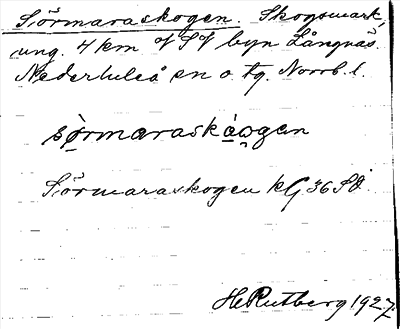 Sörmaraskogen. Skogsmark,
ung. 4 km of S of byn Långnäs.
Nederluleå sn o. tg. Norrb. l.
sörmaraskåogen
Sörmaraskogen kG 36 SO.
H. Rutberg 1927.